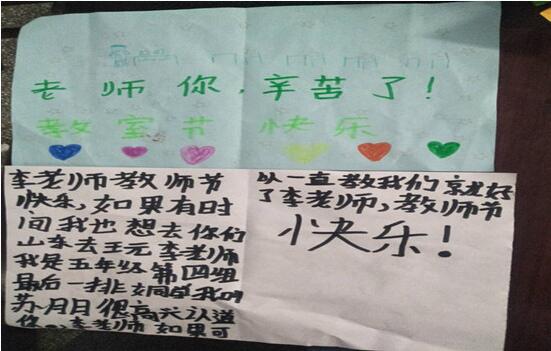 老师你,辛苦了!
教室节快乐
李老师教师节
快乐,如果有时
间我也想去你们
山东去王元李老师
我是五年级第四组
最后一排女同学我叫
苏月日很高兴认道
你。李老师如果可
以一直教我们就好
了李老师,教师节
快乐!